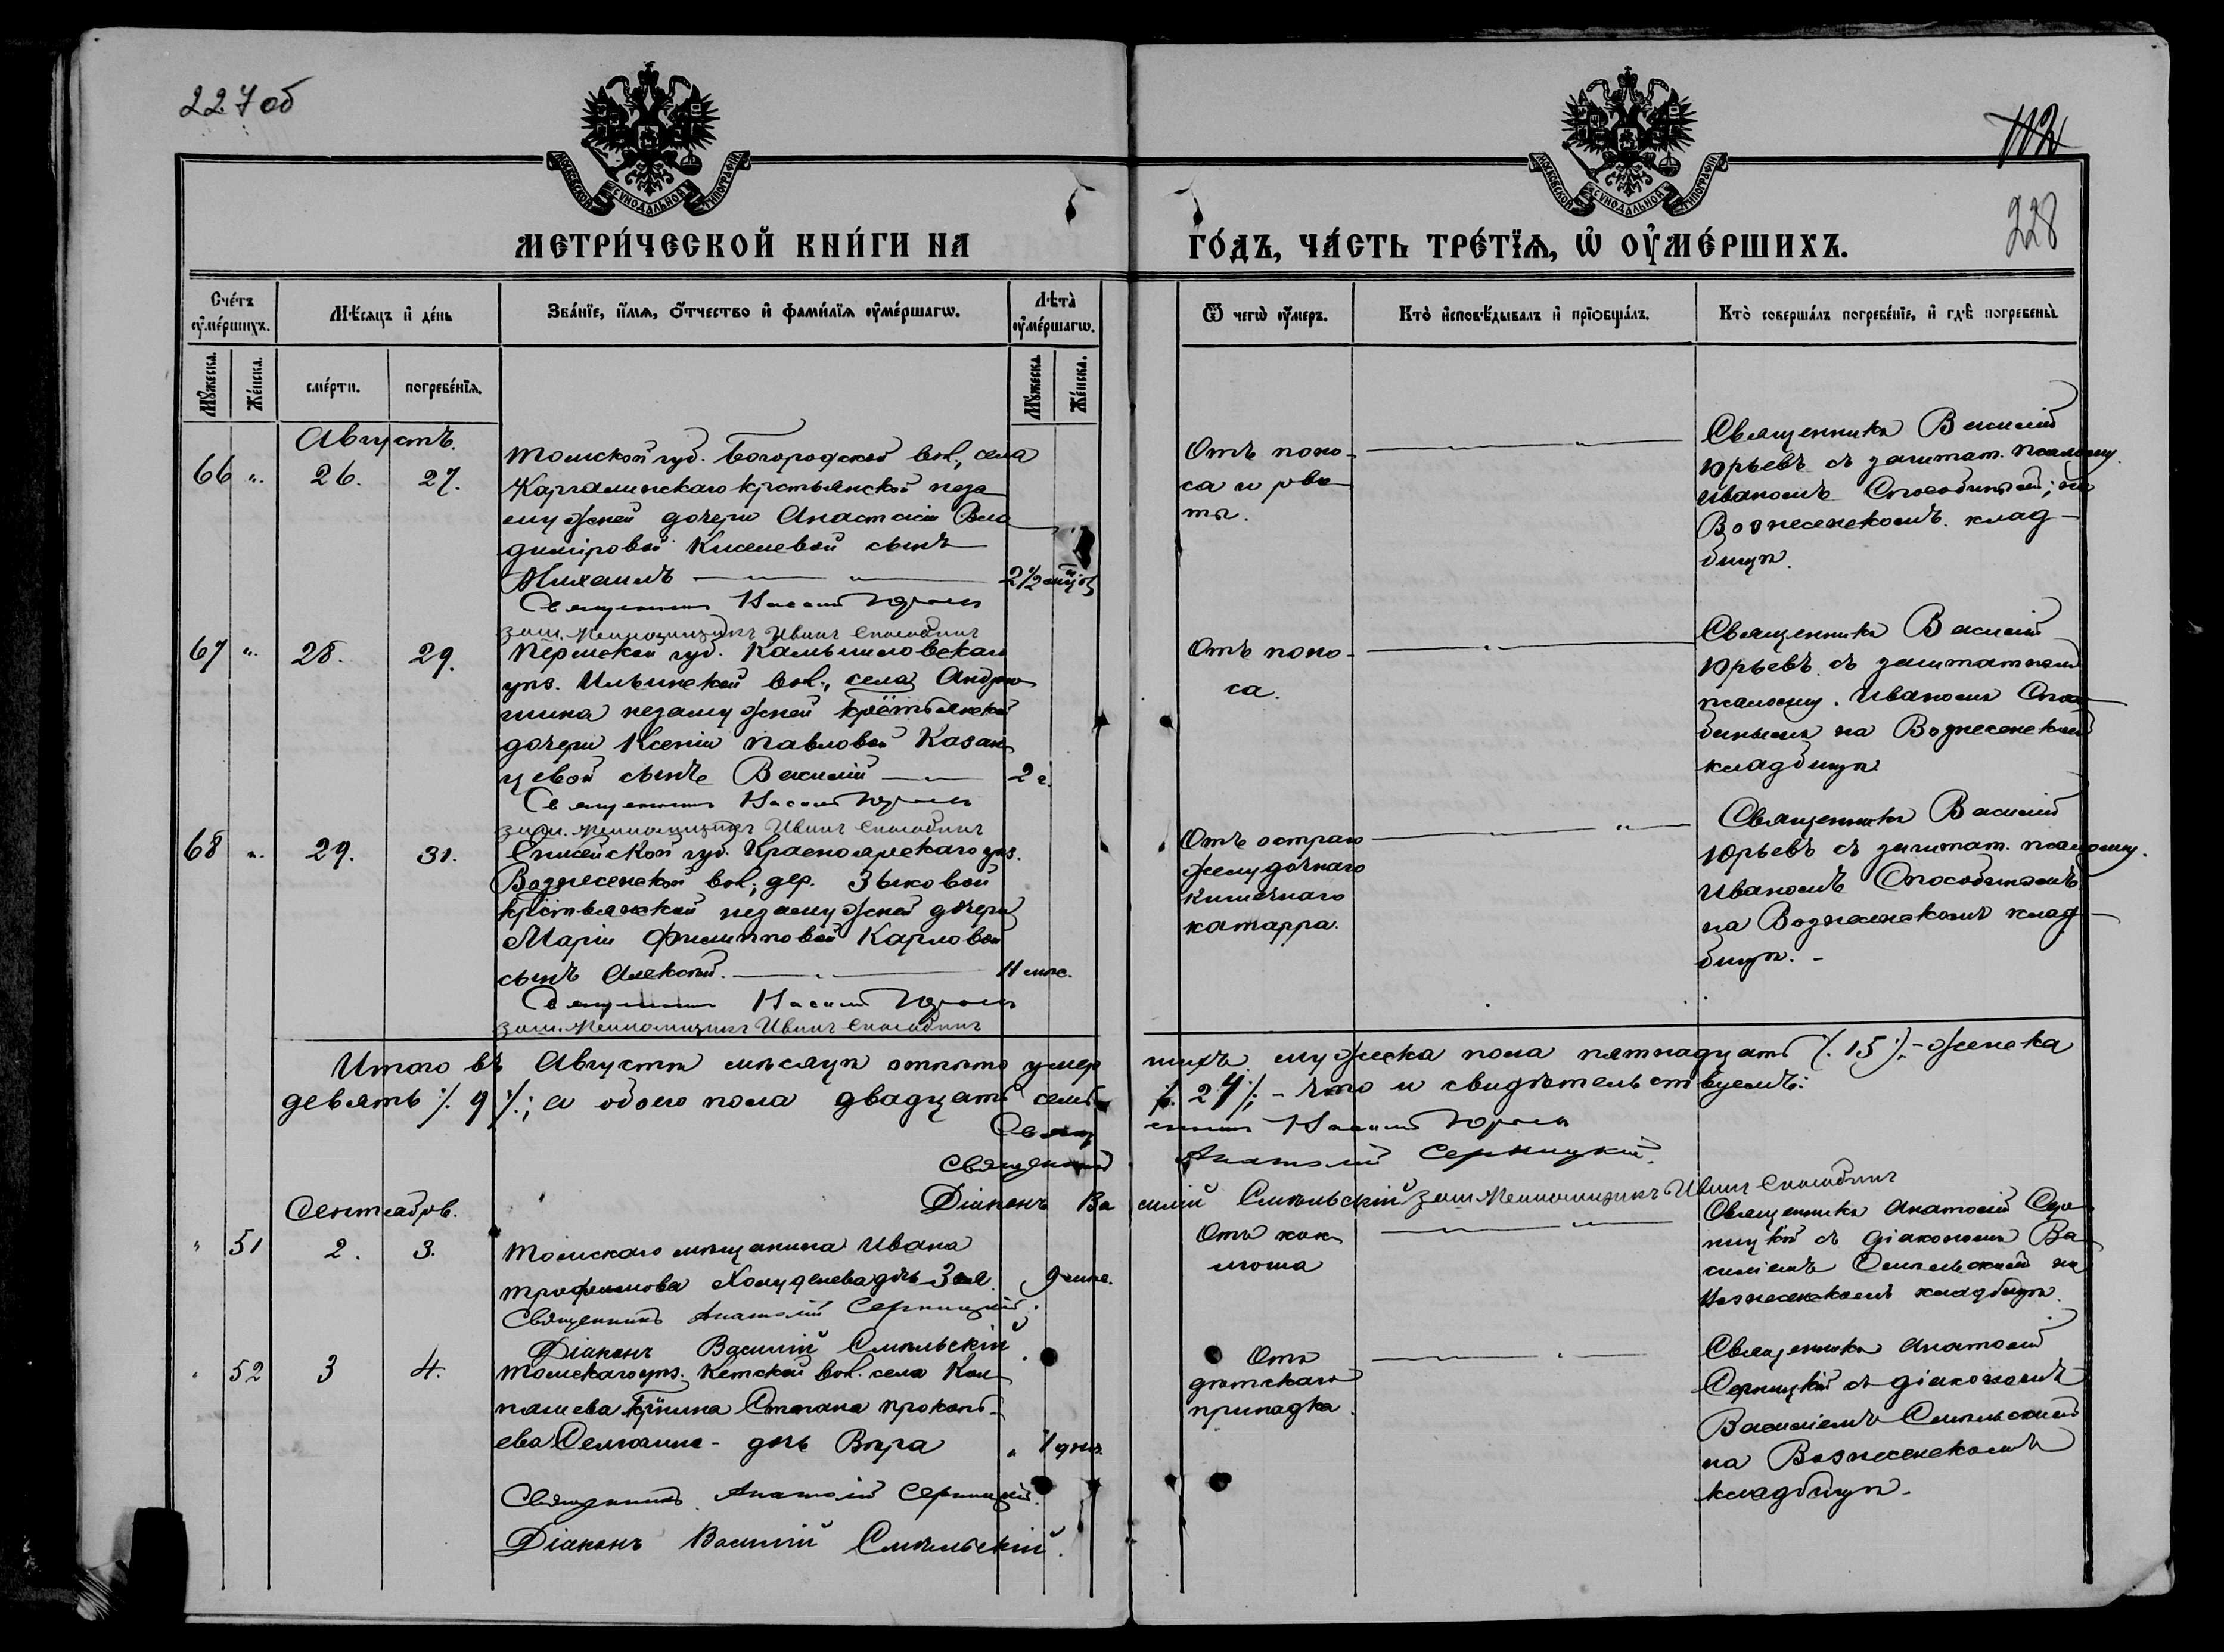 227 об
112
228
МОСКОВСКОЙ СѴНОДАЛЬНОЙ ТИПОГРАФІИ
МОСКОВСКОЙ СѴНОДАЛЬНОЙ ТИПОГРАФІИ
МЕТРИ́ЧЕСКОЙ КНИ́ГИ НА
ГО́ДЪ, ЧА́СТЬ ТРЕ́ТЇѦ, Ѡ҆ ОУ҆МЕ́РШИХЪ.
Сче́тъ оу҆ме́ршихъ.
Мѣ́сѧцъ и҆ де́нь
Зва́нїе, и҆́мѧ, ѻ҆́тчество и҆ фами́лїѧ оу҆ме́ршагѡ.
Лѣ̀та оу҆ме́ршагѡ.
Ѿ чегѡ̀ оу҆́меръ.
Кто̀ и҆сповѣ́дывалъ и҆ прїѻбща́лъ.
Кто̀ соверша́лъ погребе́нїе, и҆ гдѣ̀ погребены̀.
Мꙋ́жеска.
Же́нска.
сме́рти.
погребе́нїѧ.
Мꙋ́жеска.
Же́нска.
Августъ.
66 „ 26. 27.
Томской губ. Богородской вол., села
Каргалинскаго крстьянской неза
мужней дочери Анастасіи Вла
диміровой Киселевой сынъ
Михаилъ 2½
Священникъ Василій Юрьевъ
заш. Псаломщикъ Иванъ Способинъ
Отъ поно-
са и рво
ты.
Священникъ Василій
Юрьевъ съ заштат. псаломщ.
Иваномъ Способинымъ; на
Вознесенскомъ клад-
бищѣ.
67 „ 28. 29.
Пермской губ. Камышловскаго
уѣз. Ильинской вол., села
незамужней
дочери Ксеніи Павловой Казан
цевой сынъ Василій 2 г.
Священникъ Василій Юрьевъ
заш. Псаломщикъ Иванъ Способинъ
Отъ поно-
са.
Священникъ Василій
Юрьевъ съ заштатнымъ
псаломщ. Иваномъ Спосо
бинымъ на Вознесенскомъ
кладбищѣ.
68 „ 29. 31.
Енисейской губ. Красноярскаго уѣз.
Вознесенской вол., дер. Зыковой
крстьянской незамужней дочери
Маріи Филипповой Карловой
сынъ Алексѣй. 11 мѣс.
Священникъ Василій Юрьевъ
заш. Псаломщикъ Иванъ Способинъ
Отъ остраго
желудочнаго
кишечнаго
катарра.
Священникъ Василій
Юрьевъ съ заштат. псаломщ.
Иваномъ Способинымъ
на Вознесенскомъ клад-
бищѣ. -
Итого въ Августѣ мѣсяцѣ отпѣто умер шихъ мужеска пола пятнадцать /. 15 /.- женска
девять /. 9 /.; а обоего пола двадцать семь /. 27 /. - что и свидѣтельствуемъ:
Священникъ Василій Юрьевъ
Священникъ Анатолій Серницкій.
Діаконъ Василій Смѣльскій заш. Псаломщикъ Иванъ Способинъ
Сентябрь.
„ 51 2. 3.
Томскаго мѣщанина Ивана
Трофимова дочь 9 мѣс.
Священникъ Анатолій Серницкій.
Діаконъ Василій Смѣльскій.
Отъ кок
люша
Священникъ Анатолій Сер
ницкій съ діакономъ Ва
силіемъ Смѣльскимъ на
Вознесенскомъ кладбищѣ.
„ 52 3 4.
Томскаго уѣз. Кетской вол. села Кол
пашева Степана Прокопь-
ева - дочь Вѣра „ 7 дней.
Священникъ Анатолій Серницкій.
Діаконъ Василій Смѣльскій.
Отъ
дѣтскаго
припадка
Священникъ Анатолій
Серницкій съ діакономъ
Василіемъ Смѣльскимъ
на Вознесенскомъ
кладбищѣ.